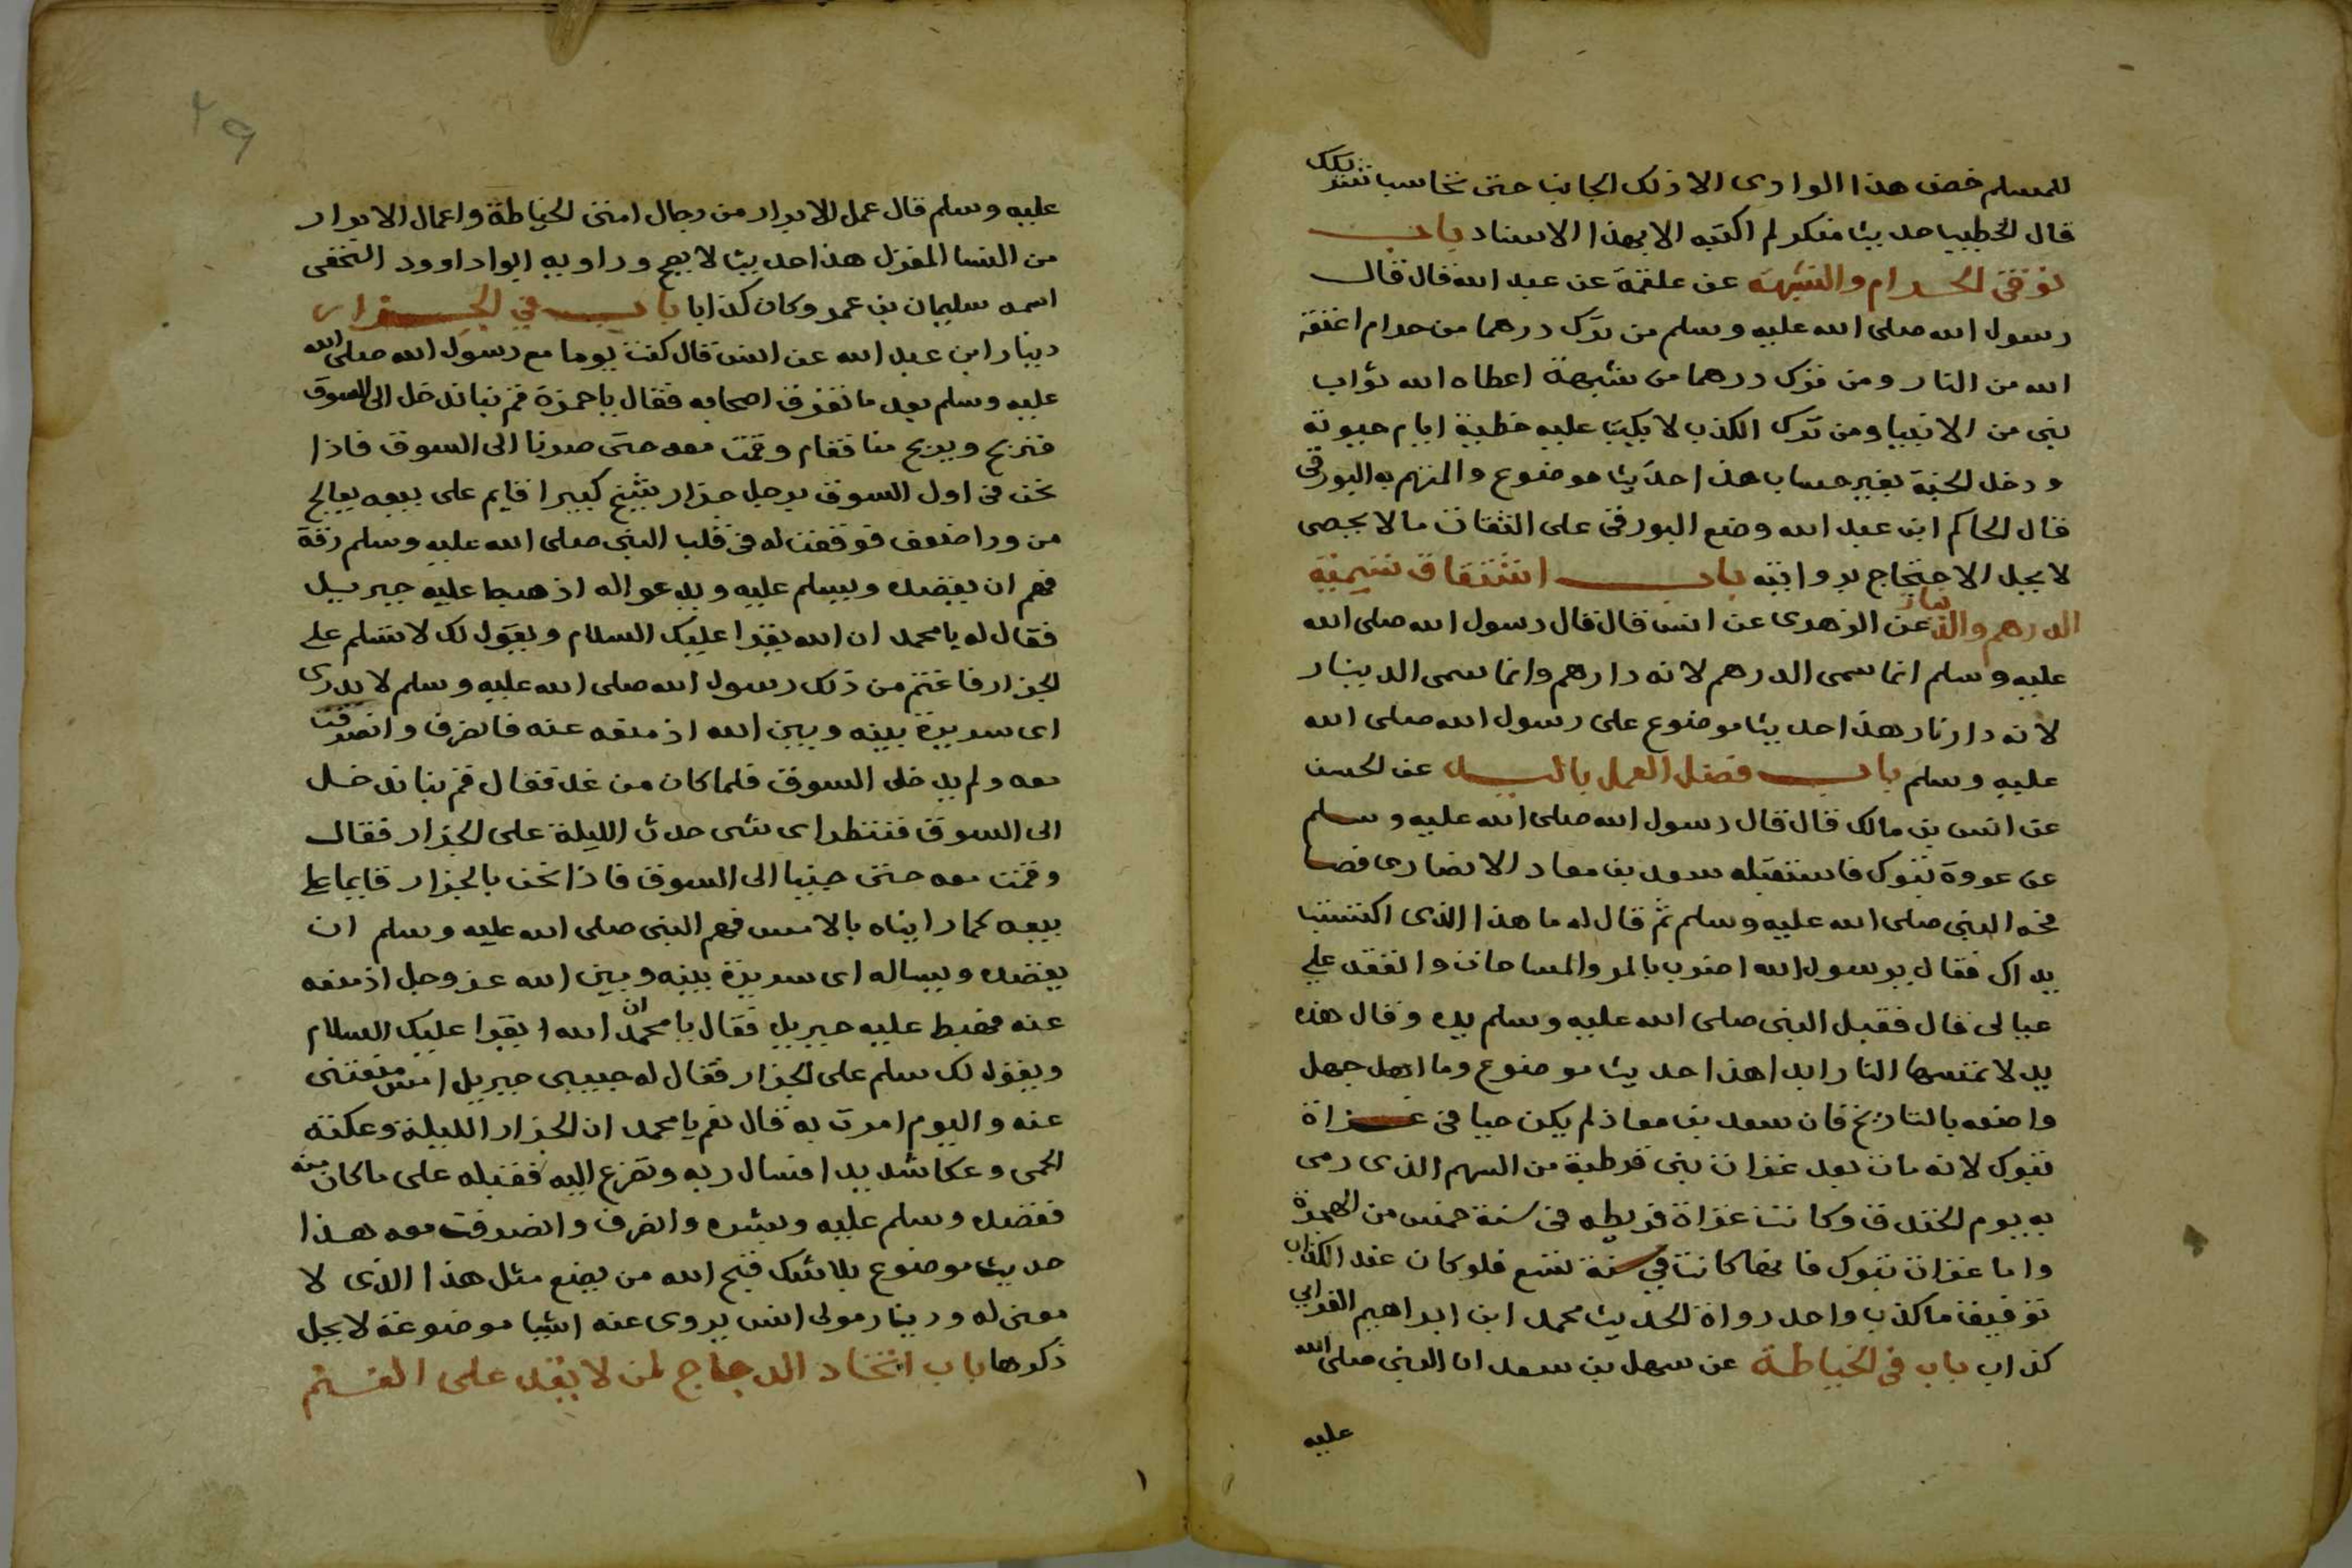 للمسلم خض هذا الوادى الا ذلك الجانب حتى تحاسب
قال الخطيب حديث منكر لم اكتبه الا بهذا الاسناد باب
توقى الحرام والشبهة عن علقمة عن عبد الله قال قال
رسول الله صلى الله عليه وسلم من ترك درهما من حرام اعتقه
الله من النار ومن ترك درهما من شبهة اعطاه الله ثواب
نبى من الانبيا ومن ترك الكذب لا يكتب عليه خطية ايام حيوته
ودخل الجنة بغير حساب هذا حديث موضوع والمتهم به البورقى
قال الحاكم ابن عبد الله وضع البورقى على الثقات ما لا يحصى
لا يحل الاحتجاج بروايته باب اشتقاق تسمية
الدرهم والدينار عن الزهرى عن انس قال قال رسول الله صلى الله
عليه وسلم انما سمى الدرهم لانه دار هم وانما سمى الدينار
لانه دار نار هذا حديث موضوع على رسول الله صلى الله
عليه وسلم باب فضل العمل باليد عن الحسن
عن انس بن مالك قال قال رسول الله صلى الله عليه وسلم
عن عروة تبوك فاستقبله سعد بن معاد الانصارى فصا
فحه النبى صلى الله عليه وسلم ثم قال له ما هذا الذى اكتسبت
يداك فقال يرسول الله اضرب بالمر والمساحات وانفقه على
عيالى قال فقبل النبى صلى الله عليه وسلم يده وقال هذه
يد لا تمسها النار ابدا هذا حديث موضوع وما اجهل
واضعه بالتاريخ فان سعد بن معاذ لم يكن حيا فى غزاة
تبوك لانه مات بعد غزات بنى قرظية من السهم الذى رمى
به يوم الخندق وكانت غزاة قريظه فى سنة خمس من الهجرة
واما غزات تبوك فانها كانت في سنة تسع فلو كان عند الكذاب
توفيق ما كذب واحد رواة الحديث محمد ابن ابراهيم
كذاب باب فى الخياطة عن سهل بن سعد ان النبى صلى الله
عليه
٢٩
عليه وسلم قال عمل الابرار من رجال امتى الخياطة واعمال الابرار
من النسا المغزل هذا حديث لا يصح وراويه ابوا داوود النخعى
اسمه سليمان بن عمرو كان كذابا باب في الجزار
دينار ابن عبد الله عن انس قال كنت يوما مع رسول الله صلى الله
عليه وسلم بعد ما تفرق اصحابه فقال يا حمزة قم بنا ندخل الى السوق
فنربح ويربح منا فقام وقمت معه حتى صرنا الى السوق فاذا
نحن فى اول السوق برجل جزار شيخ كبير قايم على بيعه يعالج
من ورا ضعف فوقعت له فى قلب النبى صلى الله عليه وسلم رقة
فهم ان يقصده ويسلم عليه ويدعواله اذ هبط عليه جبريل
فقال له يا محمد ان الله يقرا عليك السلام ويقول لك لا تسلم على
الجزار فاغتم من ذلك رسول الله صلى الله عليه وسلم لا يدرى
اى سريرة بينه وبين الله اذ منعه عنه فانصرف وانصرفت
معه ولم يدخل السوق فلما كان من غد فقال قم بنا ندخل
الى السوق فننظر اى شى حدث الليلة على الجزار فقال
وقمت معه حتى جينا الى السوق فاذا نحن بالجزار قايما على
بيعه كما رايناه بالامس فهم النبى صلى الله عليه وسلم ان
يقصده ويساله اى سريرة بينه وبين الله عز وجل اذ منعه
عنه فهبط عليه جبريل فقال يا محمد ان الله يقرا عليك السلام
ويقول لك سلم على الجزار فقال له حبيبى جبريل امس منعتنى
عنه واليوم امرت به قال نعم يا محمد ان الجزار الليلة وعكته
الحمى وعكا شديدا فسال ربه وتضرع اليه فقبله على ما كان منه
فقصده وسلم عليه وبشره وانصرف وانصرفت معه هذا
حديث موضوع بلا شك قبح الله من يضع مثل هذا الذى لا
معنى له ودينار مولى انس يروى عنه اشيا موضوعة لا يحل
ذكرها باب اتخاد الدجاج لمن لا يقد على الغنم